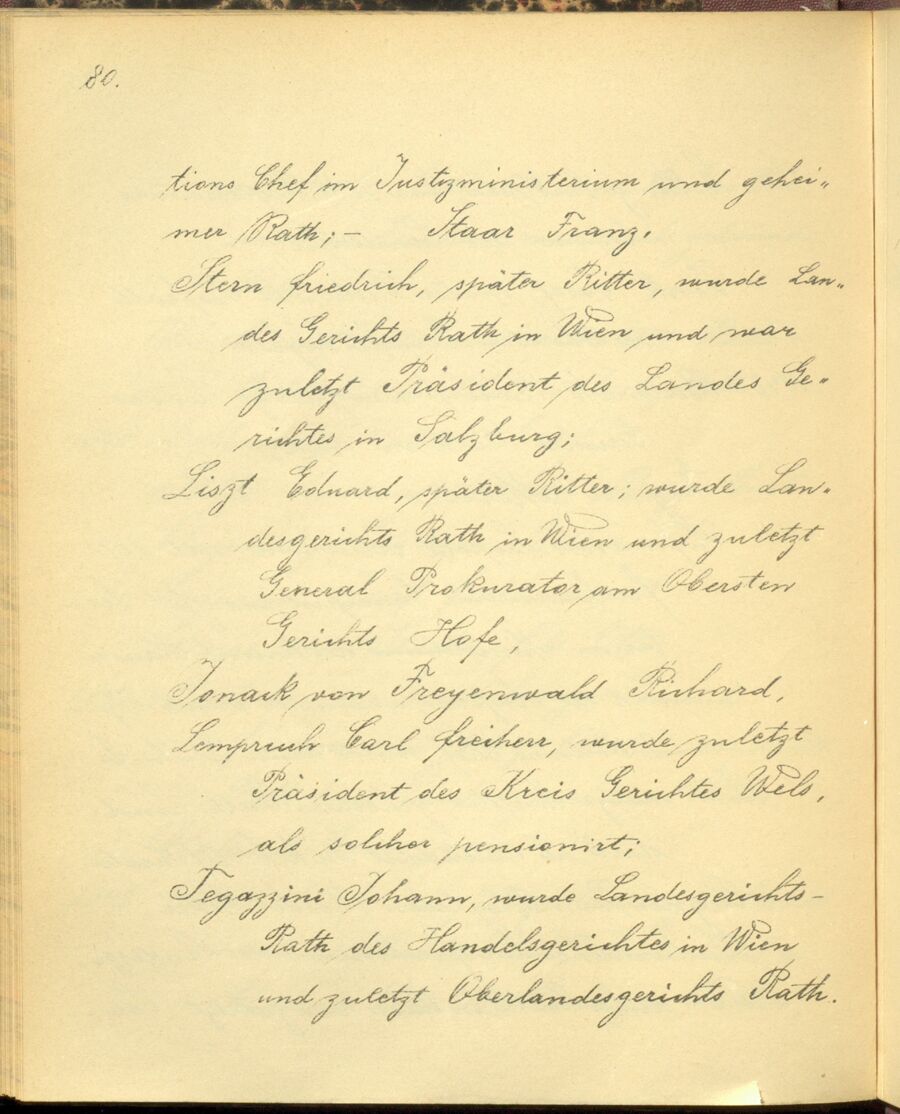 80.
tions Chef im Justizministerium und gehei„
mer Rath; – Staar Franz.
Stern Friedrich, später Ritter, wurde Lan„
des Gerichts Rath in Wien und war
zuletzt Präsident des Landes Ge„
richtes in Salzburg;
Liszt Eduard, später Ritter; wurde Lan„
desgerichts Rath in Wien und zuletzt
General Prokurator am Obersten
Gerichts Hofe,
von Freyenwald Richard,
Lempruch Carl Freiherr, wurde zuletzt
Präsident des Kreis Gerichtes Wels,
als solcher pensionirt;
Tegazzini Johann, wurde Landesgerichts–
Rath des Handelsgerichtes in Wien
und zuletzt Oberlandesgerichts Rath.